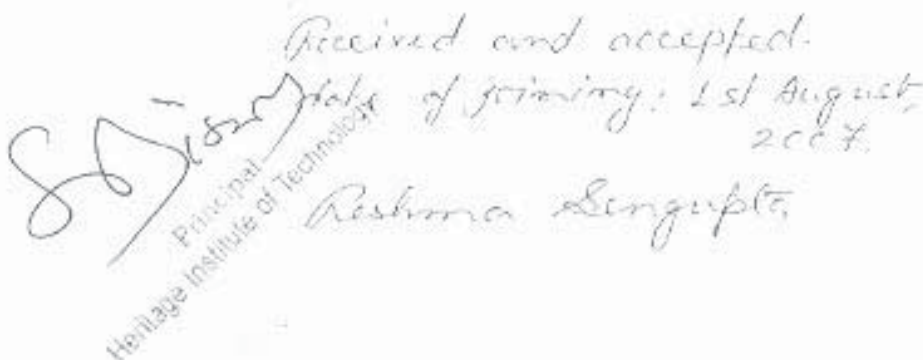 Received and accepted.
Date of joining: 1st August,
2007.
Reshma Sengupta
Principal
Heritage Institute of Technology